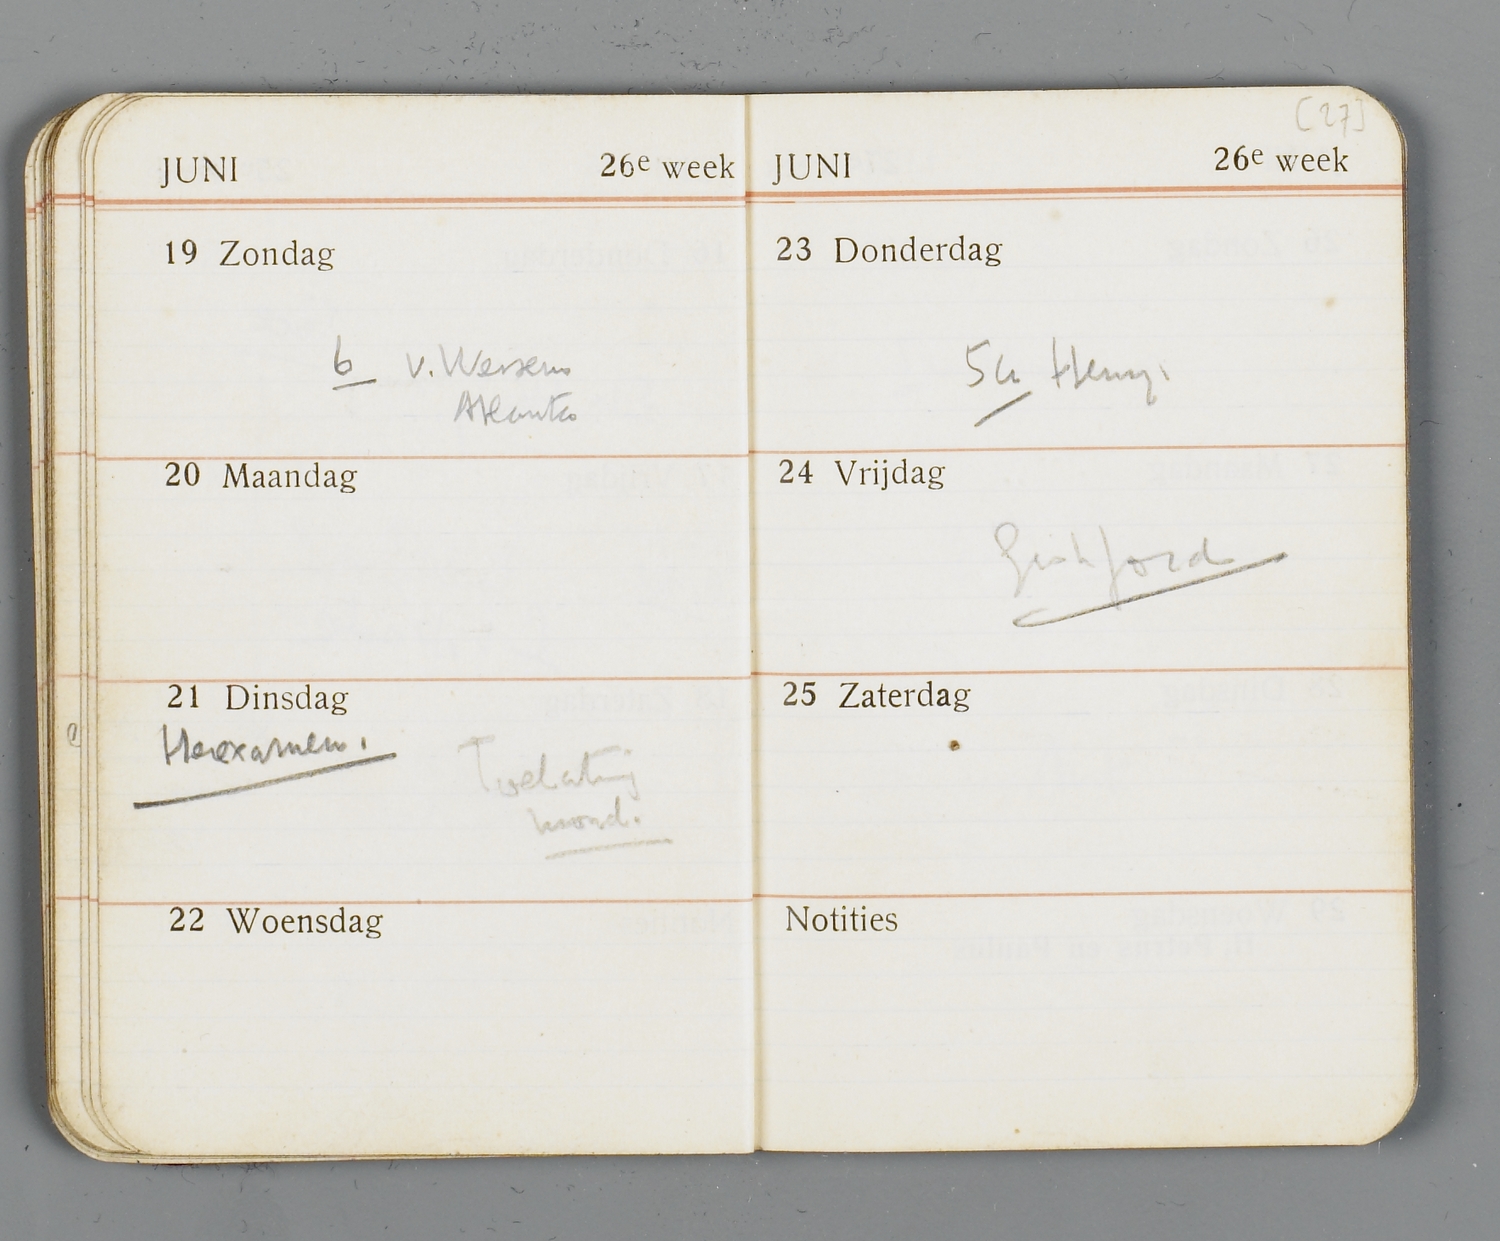 JUNI 26e week
19 Zondag
6 v. Wessem
Atlanta
20 Maandag
21 Dinsdag
Herexamen.
Toelating
mond.
22 Woensdag
[27]
JUNI 26e week
23 Donderdag
5u Henny.
24 Vrijdag
25 Zaterdag
Notities